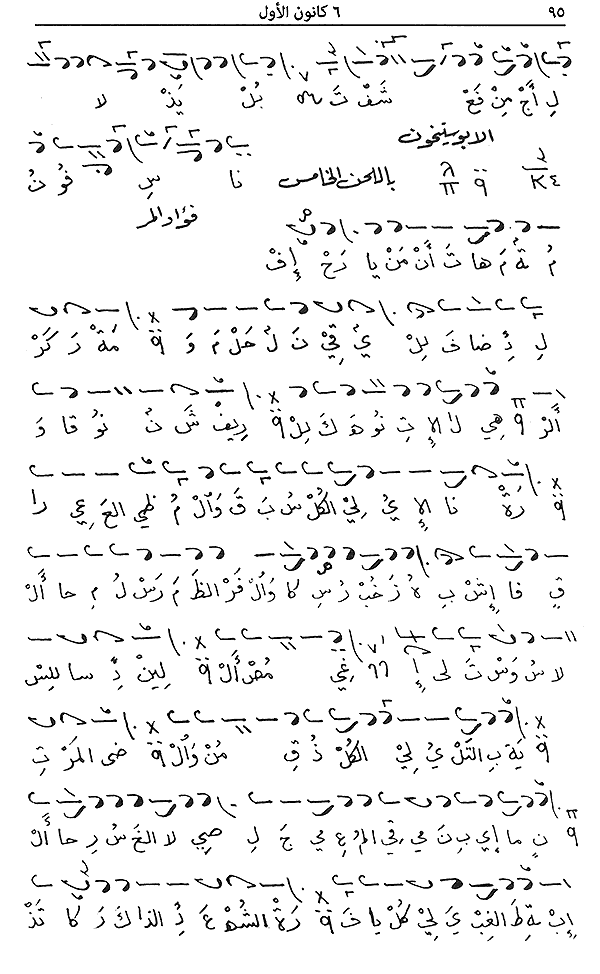 ٩٥ ٦ كانون الأول
لِ أَجْ مِنْ نَعْ شَفْ تَ بُلْ يَذْ لا
الابوستيخون
باللحن الخامس نا سِ فُو نُ
فؤاد المر
مُ ةُ مَ هَا تَ أَنْ مَنْ يا رَحْ إِفْ
لِ ذِ ضا فَ لِلْ يُ قِيْ نَ لُ حَلْ مَ وَ مَةْ رَ كَرْ
أَلْرْ هِي لا الإِ تِ نُو هَ كَ لِلْ رِيفْ شَ نُ نُو قا وَ
رَةْ نا الإِ يُ لِيْ الكُلْ سُ بَ قَ وَآلْ مُ ظِي العَ عِي را
قِ فا إِشْ بِ هُ زَ خُبْ رُ سِ كا وَآلْ فَرْ الظَ مَ رَسْ لُ مِ حا أَلْ
لا سُ وَسْ تَ لى إِ غِي مَصْ أَلْ لِينْ ذِ سا لِلبْس
يَةِ بِ التَلْ يُ لِيْ الكُلْ ذُ قِ مُنْ وَآلْ ضى المَرْ تِ
نٍ ما إِي بِ تَ مِي رَقِي المُ عِ مِي جَ لِ صِي لا الخَ سُ رِ حا أَلْ
إِبْ ةِ طَ الغِبْ يَ لِيْ كُلْ يا خَ رَةْ الشُهْ عَ ذِ الذا كَ رَ كا تَذْ